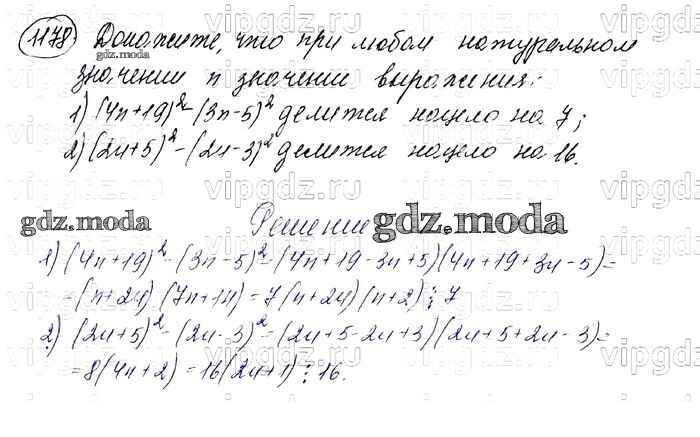 1178. Докажите, что при любом натуральном
значении n значение выражения:
1) (4n+19)²-(3n-5)² делится нацело на 7;
2) (2n+5)²-(2n-3)² делится нацело на 16.
Решение
1) (4n+19)²-(3n-5)²=(4n+19-3n+5)(4n+19+3n-5)=
=(n+24)(7n+14)=7(n+24)(n+2)⋮7
2) (2n+5)²-(2n-3)²=(2n+5-2n+3)(2n+5+2n-3)=
=8(4n+2)=16(2n+1)⋮16.
gdz.moda
gdz.moda
gdz.moda
vipgdz.ru